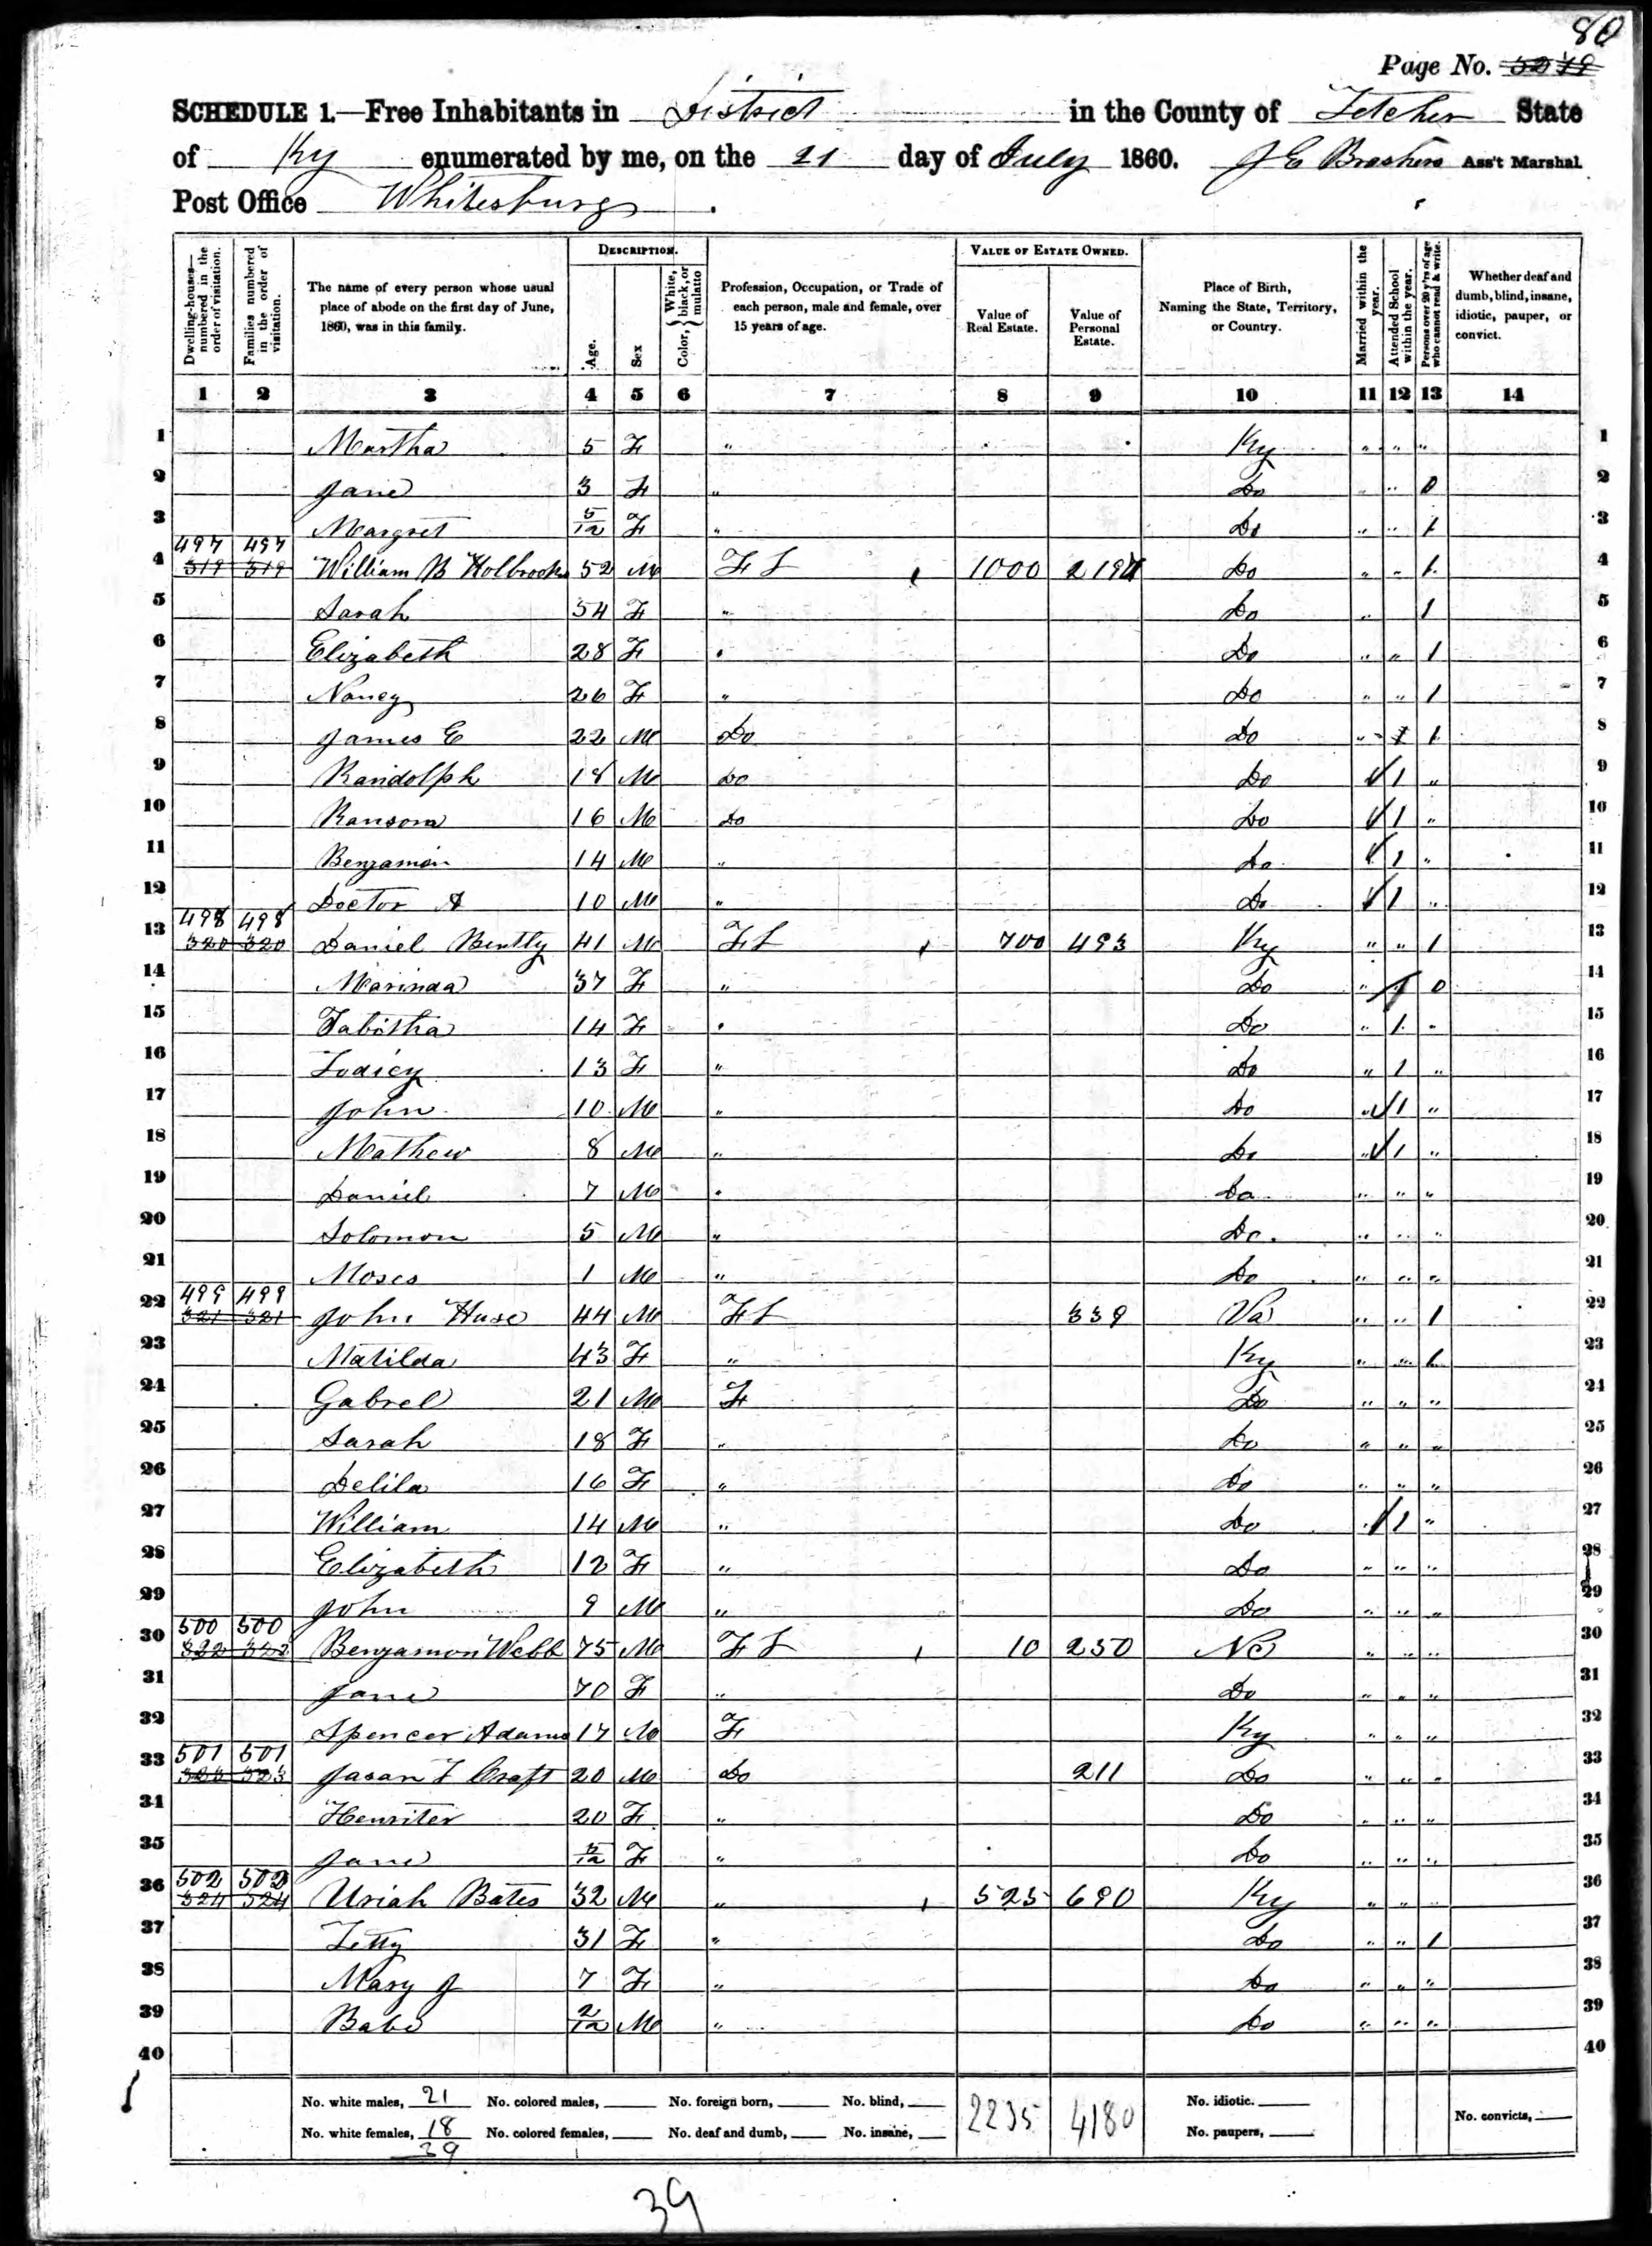 80
Page No. 52 79
SCHEDULE 1.—Free Inhabitants in District in the County of Letcher State
of Ky enumerated by me, on the 21 day of July 1860. J E Brashers Ass't Marshal
Post Office Whitesburg.
Dwelling-houses—numbered in the order of visitation. Families numbered in the order of visitation. The name of every person whose usual place of abode on the first day of June, 1860, was in this family. DESCRIPTION. Age. Sex Color, { White, black, or mulatto Profession, Occupation, or Trade of each person, male and female, over 15 years of age. VALUE OF ESTATE OWNED. Value of Real Estate. Value of Personal Estate. Place of Birth, Naming the State, Territory, or Country. Married within the year. Attended School within the year. Persons over 20 y'rs of age who cannot read & write. Whether deaf and dumb, blind, insane, idiotic, pauper, or convict.
1 2 3 4 5 6 7 8 9 10 11 12 13 14
1 Martha 5 F " Ky " " " 1
2 Jane 3 F " Do " " 0 2
3 Margret 5/12 F " Do " " 1 3
497 497
4 319 319 William B Holbrooks 52 M F L 1000 2194 Do " " 1 4
5 Sarah 54 F " Do " 1 5
6 Elizabeth 28 F " Do " " 1 6
7 Nancy 26 F " Do " " 1 7
8 James E 22 M Do Do " 1 1 8
9 Randolph 18 M Do Do 1 " 9
10 Ransom 16 M Do Do 1 " 10
11 Benjamin 14 M " Do 1 " 11
12 Doctor A 10 M " Do 1 " 12
498 498
13 320 320 Daniel Bently 41 M F L 700 493 Ky " " 1 13
14 Marinda 37 F " Do " 1 0 14
15 Tabitha 14 F " Do " 1 " 15
16 Lodicy 13 F " Do " 1 " 16
17 John 10 M " Do " 1 " 17
18 Mathew 8 M " Do " 1 " 18
19 Daniel 7 M " Do " " " 19
20 Solomon 5 M " Do " " " 20
21 Moses 1 M " Do " " " 21
499 499
22 321 321 John Huse 44 M F L 339 Va " " 1 22
23 Matilda 43 F " Ky " " 1 23
24 Gabrel 21 M F Do " " " 24
25 Sarah 18 F " Do " " " 25
26 Delila 16 F " Do " " " 26
27 William 14 M " Do 1 " 27
28 Elizabeth 12 F " Do " " " 28
29 John 9 M " Do " " " 29
500 500
30 322 322 Benjamon Webb 75 M F L 10 250 NC " " " 30
31 Jane 70 F " Do " " " 31
32 Spencer Adams 17 M F Ky " " " 32
501 501
33 323 323 Jasan L Craft 20 M Do 211 Do " " " 33
34 Henriter 20 F " Do " " " 34
35 Jane F " Do " " " 35
502 502
36 324 324 Uriah Bates 32 M " 525 690 Ky " " 36
37 Letty 31 F " Do " " 1 37
38 Mary J 7 F " Do " " " 38
39 Babe 2/12 M " Do " " " 39
40 40
No. white males, 21 No. colored males, No. foreign born, No. blind, 2235 4180 No. idiotic. No. convicts,
No. white females, 18 No. colored females, No. deaf and dumb, No. insane, No. paupers,
39
39